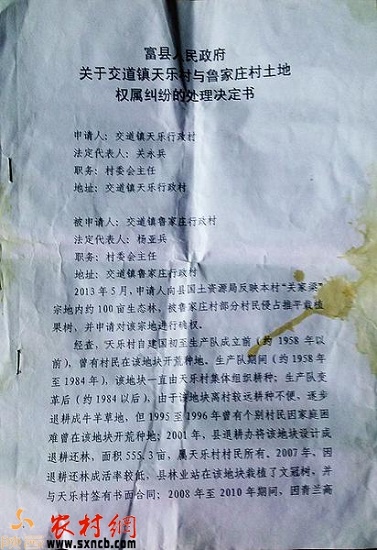 富县人民政府
关于交道镇天乐村与鲁家庄村土地
权属纠纷的处理决定书
申请人：交道镇天乐行政村
法定代表人：关永兵
职务：村委会主任
地址：交道镇天乐行政村
被申请人：交道镇鲁家庄行政村
法定代表人：杨亚兵
职务：村委会主任
地址：交道镇鲁家庄行政村
2013年5月，申请人向县国土资源局反映本村“关家梁”
宗地内约100亩生态林，被鲁家庄部分村民侵占推平栽植
果树，并申请对该宗地进行确权。
经查，天乐村自建国初至生产队成立前（约1958年以
前），曾有村民在该地块开荒种地、生产队期间（约1958年
至1984年），该地块一直由天乐村集体组织耕种；生产队变
革后（约1984以后），由于该地块离村较远耕种不便，逐步
退耕成牛羊草地，但1995至1996年曾有个别村民因家庭困
难曾在该地块开荒种地；2001年，县退耕办将该地块设计成
退耕还林，面积555.3亩，属天乐村村民所有。2007年，因
退耕还林成活率较低，县林业站在该地块栽植了文冠树，并
与天乐村签有书面合同；2008年至2010年期间，因青兰高
农村網
www.sxncb.com